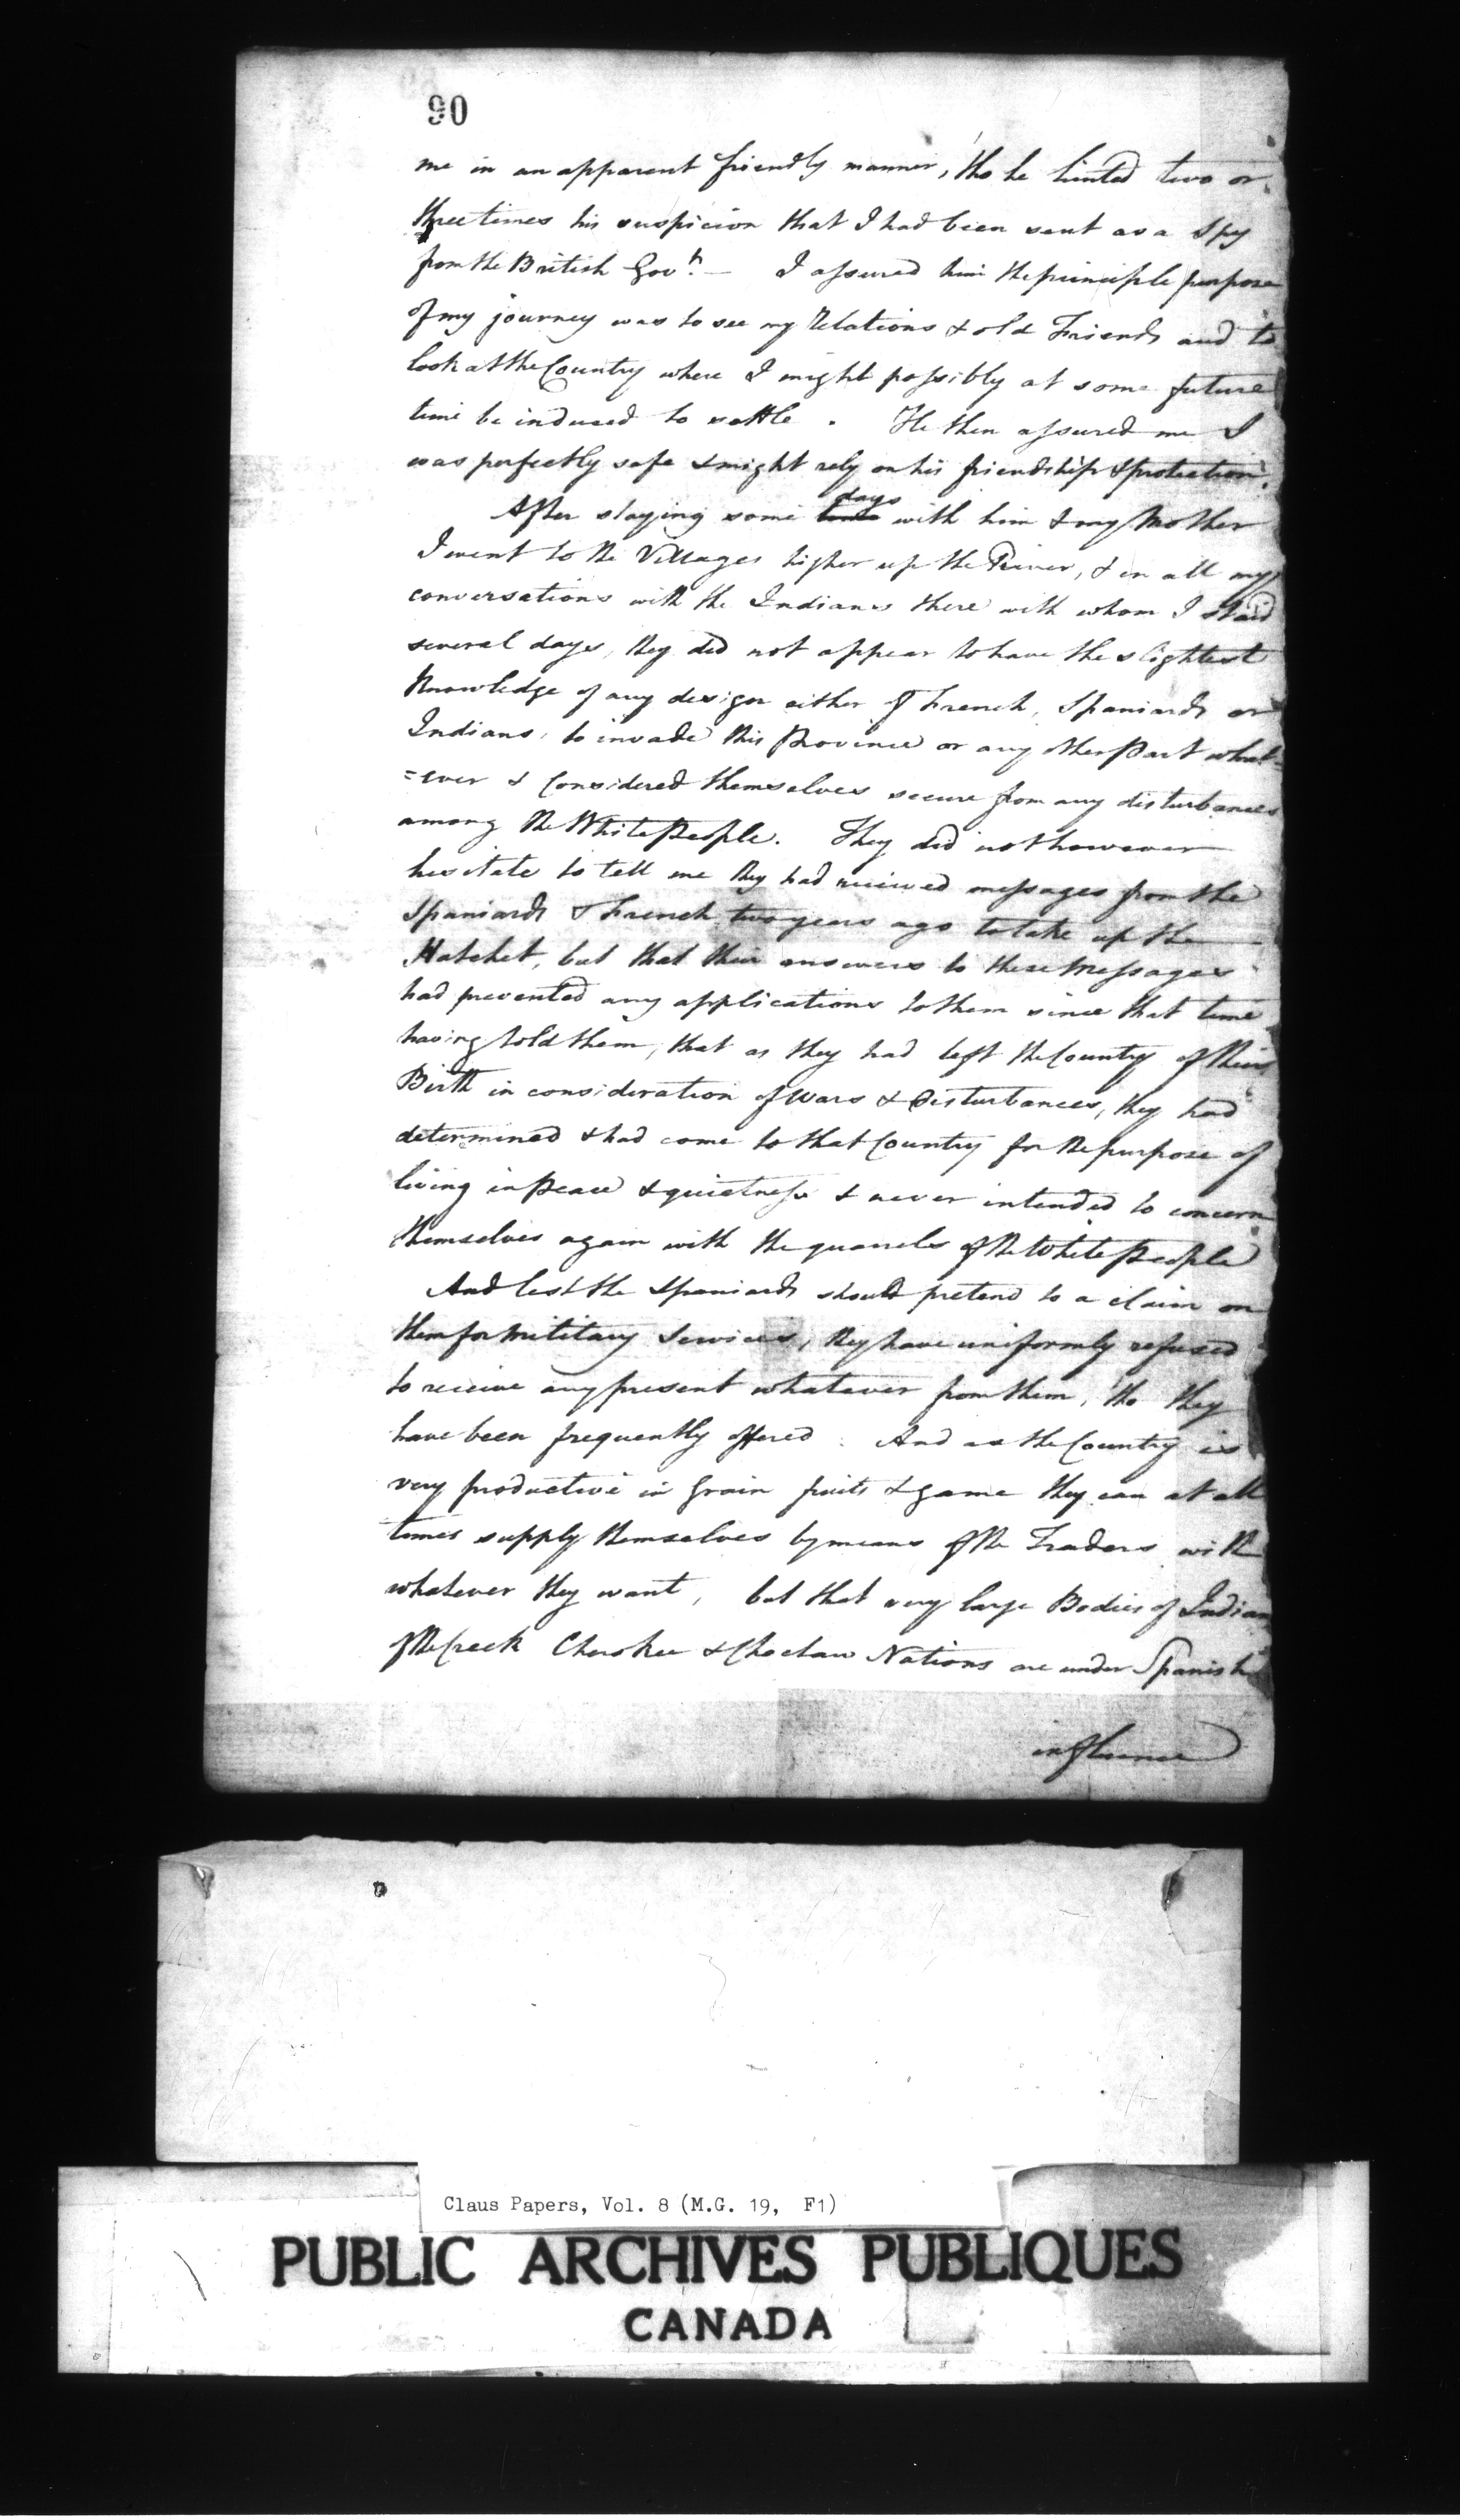 90
me in an apparent friendly manner, tho he hinted two or
three times his suspicion that I had been sent as a Spy
from the British Govt. — I assured him the principle purpose
of my journey was to see my Relations & old Friends and to
look at the Country where I might possibly at some future
time be induced to settle. He then assured me I
was perfectly safe & might rely on his friendship & protection.
After staying some days with him & my Mother
I went to the Villages higher up the River, & in all my
conversations with the Indians there with whom I staid
several days, they did not appear to have the slightest
Knowledge of any design either of French, Spaniards or
Indians, to invade this Province or any other Part what-
=ever & Considered themselves secure from any disturbances
among the White People. They did not however
hesitate to tell me they had received messages from the
Spaniards & French two years ago to take up the
Hatchet, but that their answers to these Messages
had prevented any applications to them since that time
having told them, that as they had left the Country of their
Birth in consideration of Wars & Disturbances, they had
determined & had come to that Country for the purpose of
living in Peace & quietness & never intended to concern
themselves again with the quarrels of the White People
And lest the Spaniards should pretend to a claim on
them for Military Services, they have uniformly refused
to receive any present whatever from them, tho they
have been frequently offered. And as the Country is
very productive in Grain fruits & game they can at all
times supply themselves by means of the Traders with
whatever they want, but that very large Bodies of Indians
of the Creek Cherokee & Choctaw Nations are under Spanish
influence
Claus Papers, Vol. 8 (M.G. 19, F1)
PUBLIC ARCHIVES PUBLIQUES
CANADA